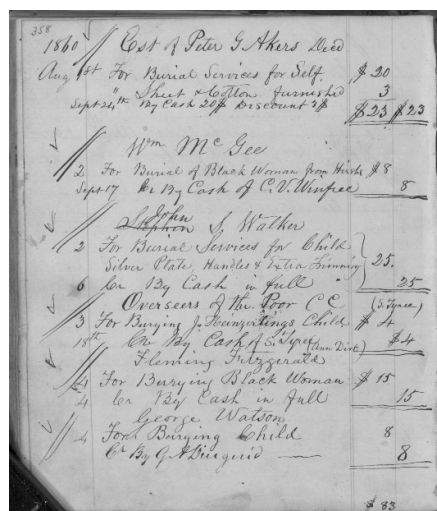 358
1860 Est of Peter G. Akers Decd
Aug 1st For Burial Services for Self. $ 20
" Sheet & Cotton furnished 3
Sept 24th By Cash 20$ Discount 3$ $ 23 $ 23
Wm McGee
2 For Burial of Black Woman from $ 8
Sept 17 Cr By Cash of C. V. Winfree 8
John
Stephron S Walker
2 For Burial Services for Child
Silver Plate, Handles & Extra Trimming 25.
6 Cr By Cash in full 25
Overseers of the Poor C C (S Tyree)
3 For Burying J. Child $ 4
18th Cr By Cash of S. Tyree $4
Fleming Fitzgerald
4 For Burying Black Woman $ 15
4 Cr By Cash in full 15
George Watson
4 For Burying Child 8
Cr By G A 8
$ 83